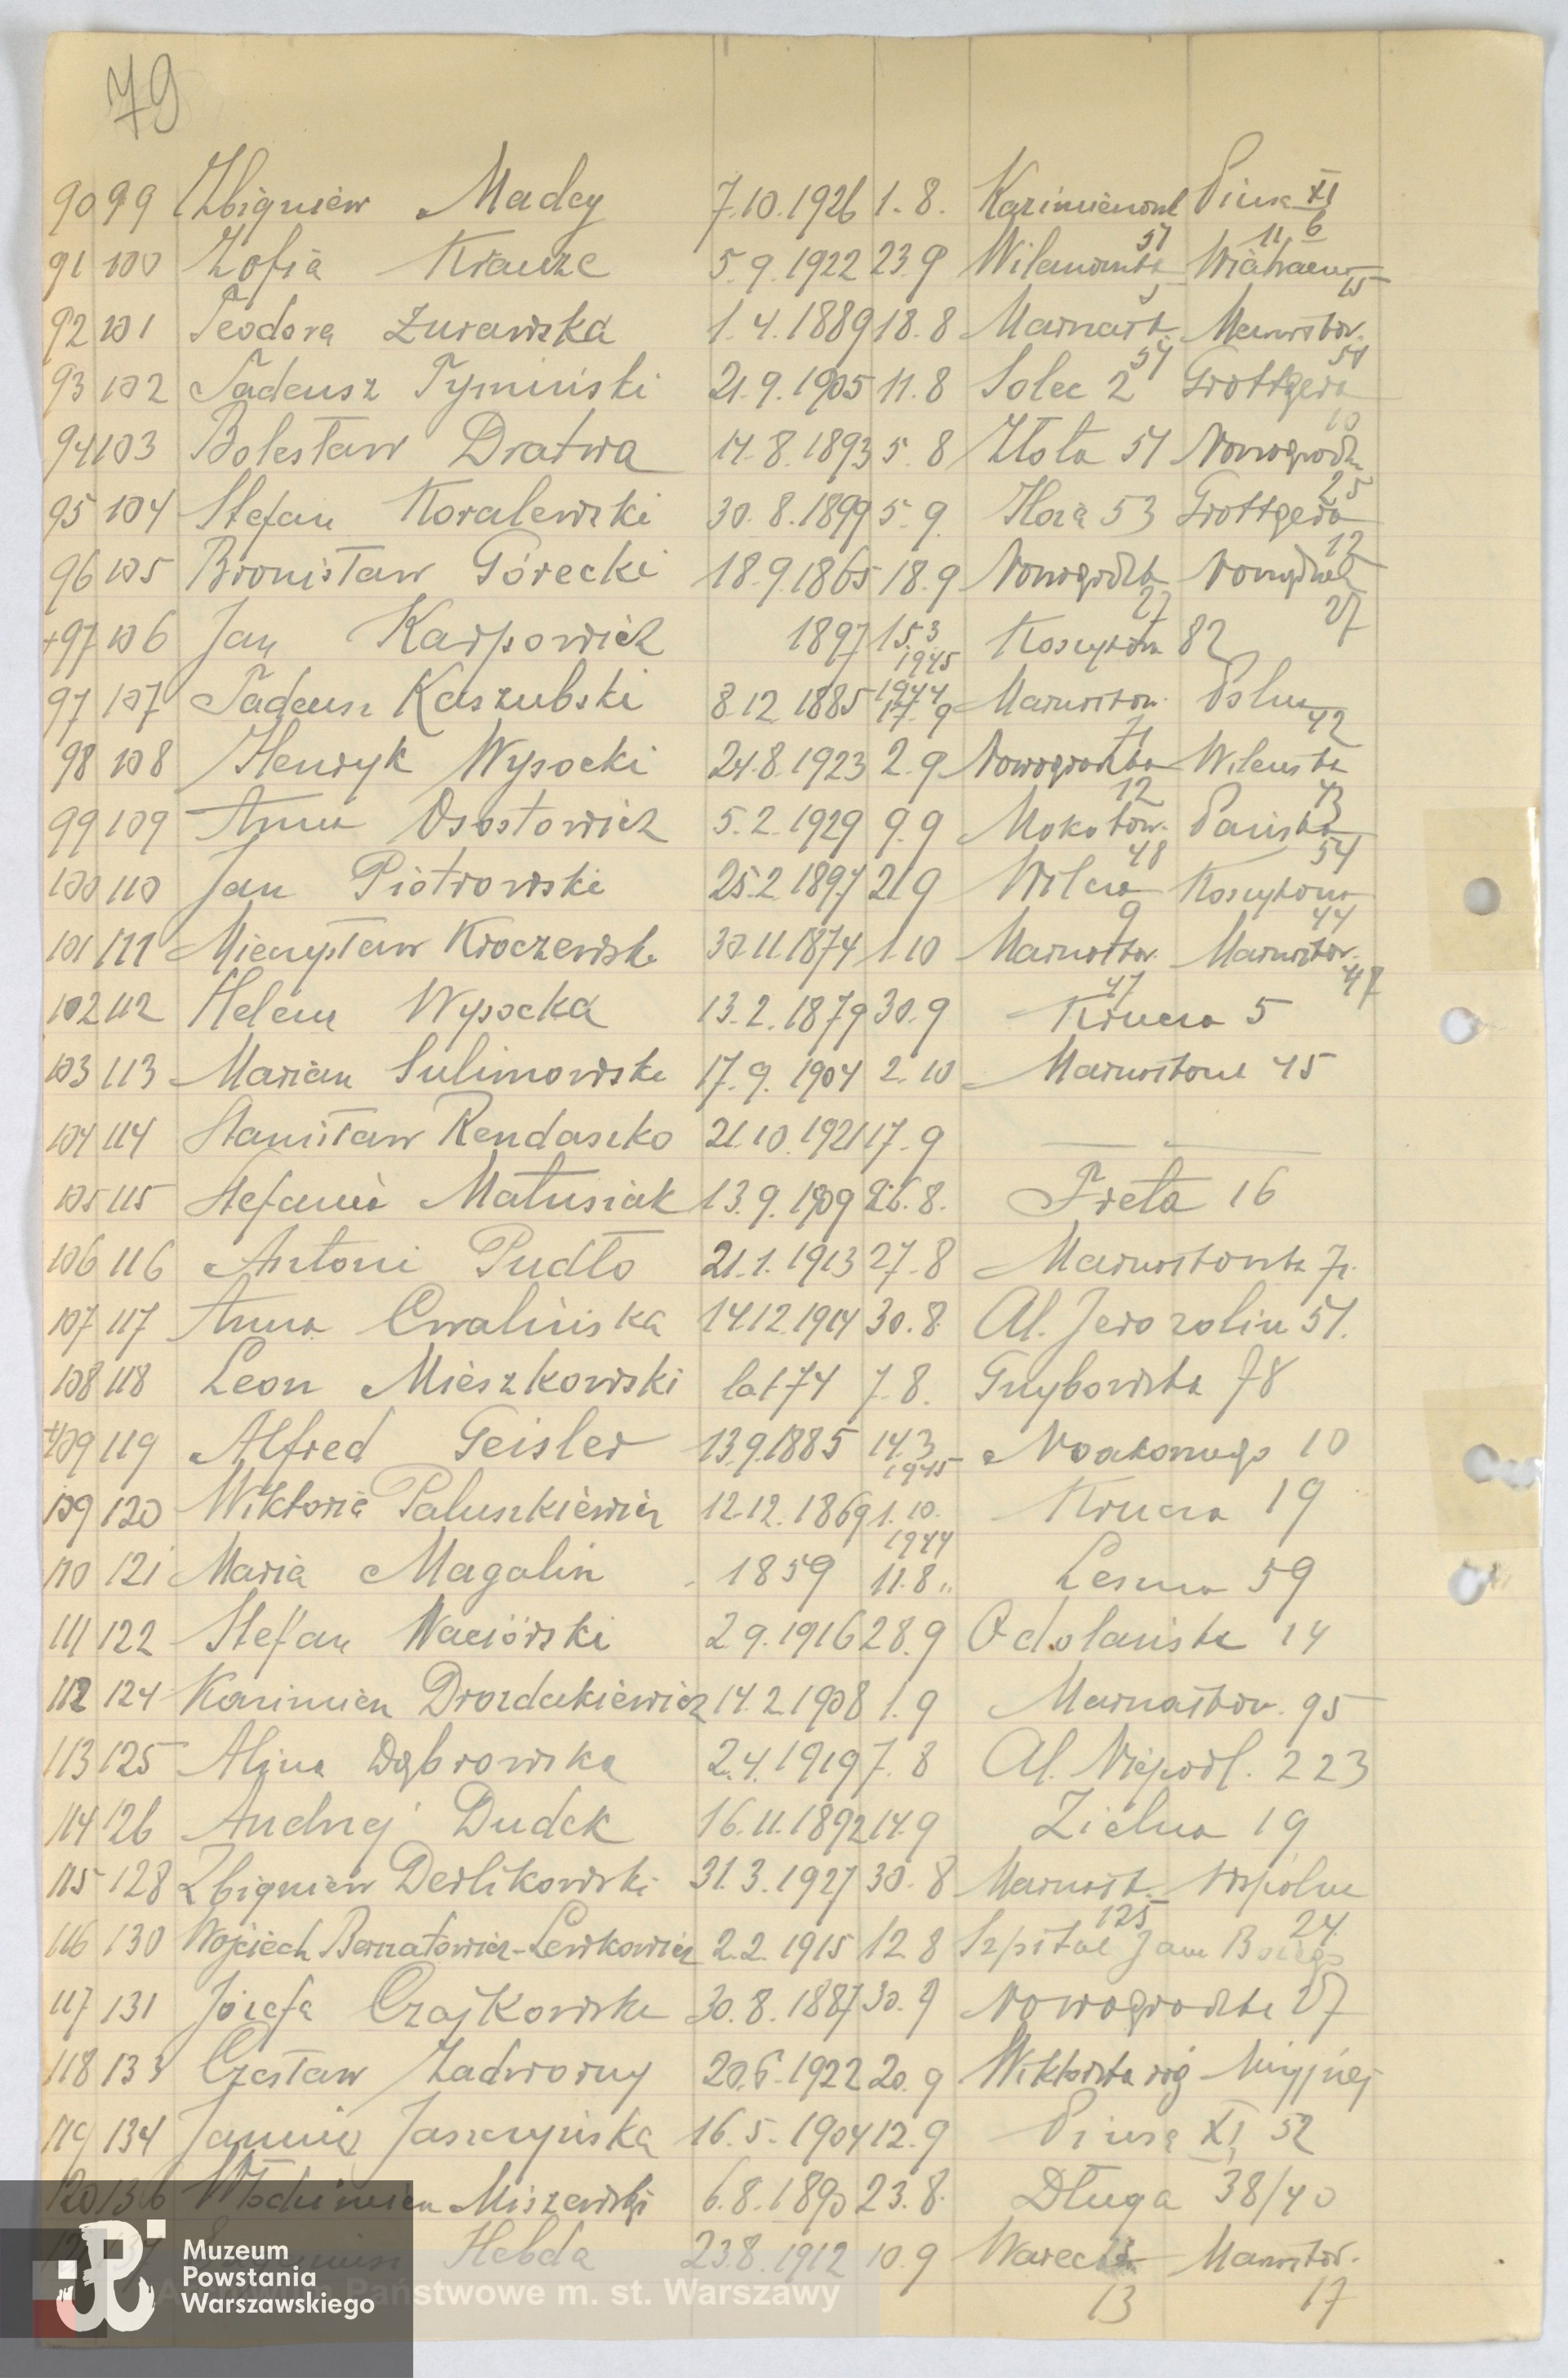 79
90 99 Zbigniew Madey 7.10.1926 1.8. Kazimierowsk Piusa XI
6
91 100 Zofia Krauze 5.9.1922 23.9 Wilanowska 51
11 15
92 101 Teodora Żurawska 1.4.1889 18.8 Marszałk. Marszałkow.
93 102 Tadeusz Tymiński 21.9.1905 11.8 Solec 2 Grottgera
94 103 Bolesław Dratwa 14.8.1893 5.8 Złota 51 Nowogrodz
95 104 Stefan Kovalewski 30.8.1899 5.9. Hoża 53 Grottgera
96 105 Bronisław Górecki 18.9.1865 18.9 Nowogrodzka 27 27
+97 106 Jan Karpowicz 1897 15.3 1945 Koszykowa 82
97 107 Tadeusz Kaszubski 8.12.1885 1944 17.9 Marszałkow. 42
98 108 Henryk Wysocki 24.8.1923 2.9 Nowogrodzka 12 Wileńska 43
99 109 Anna Ossostowicz 5.2.1929 9.9 Mokotow. 48 Pańska 54
100 110 Jan Piotrowski 25.2.1897 21.9 Wilcza 9 Koszykowa 44
101 111 Mieczysław Kroczewski 30.11.1874 1.10 Marszałkow. 47 Marszałkow. 47
102 112 Helena Wysocka 13.2.1879 30.9 Krucza 5
103 113 Marian Sulimowski 17.9.1904 2.10 Marszałkowsk 45
104 114 Stanisław Rendaszko 21.10.1921 17.9 — " —
105 115 Stefania Matusiak 13.9.1909 26.8. Freta 16
106 116 Antoni Pudło 21.1.1913 27.8 Marszałkowska
107 117 Anna Cwalińska 14.12.1914 30.8. Al. Jerozolim 51.
108 118 Leon Mieszkowski lat 74 7.8. Grzybowska 78
+109 119 Alfred Geisler 13.9.1885 14.3 1945 Noakowsego 10
109 120 Wiktoria Paluszkiewicz 12.12.1869 1.10. 1944 Krucza 19
110 121 Maria Magalin 1859 11.8 " Leszno 59
111 122 Stefan Naciórski 2.9.1916 28.9 Odolańska 14
112 124 Kazimierz Drozdakiewicz 14.2.1908 1.9 Marszałkow. 95
113 125 Alina Dąbrowska 2.4.1919 7.8 Al. Niepodl. 223
114 126 Andrzej Dudek 16.11.1892 14.9 Zielna 19
115 128 Zbigniew Derlikowski 31.3.1927 30.8 Marszałk. 125 Wspólna 24.
116 130 Wojciech Bernatowicz-Lewkowicz 2.2.1915 12.8 Szpital Jana Bożego
117 131 Józefa Czajkowska 30.8.1887 30.9 Nowogrodzka 27
118 133 Czesław Zadworny 20.6.1922 20.9 Wiktorska róg
119 134 Janina Jaszczyńska 16.5.1904 12.9 Piusa XI 52
120 136 Włodzimierz Miszewski 6.8.1890 23.8. Długa 38/40
Hebda 23.8.1912 10.9 Warecka 13 Marszałkow. 17
Muzeum
Powstania
Warszawskiego
Państwowe m. st. Warszawy